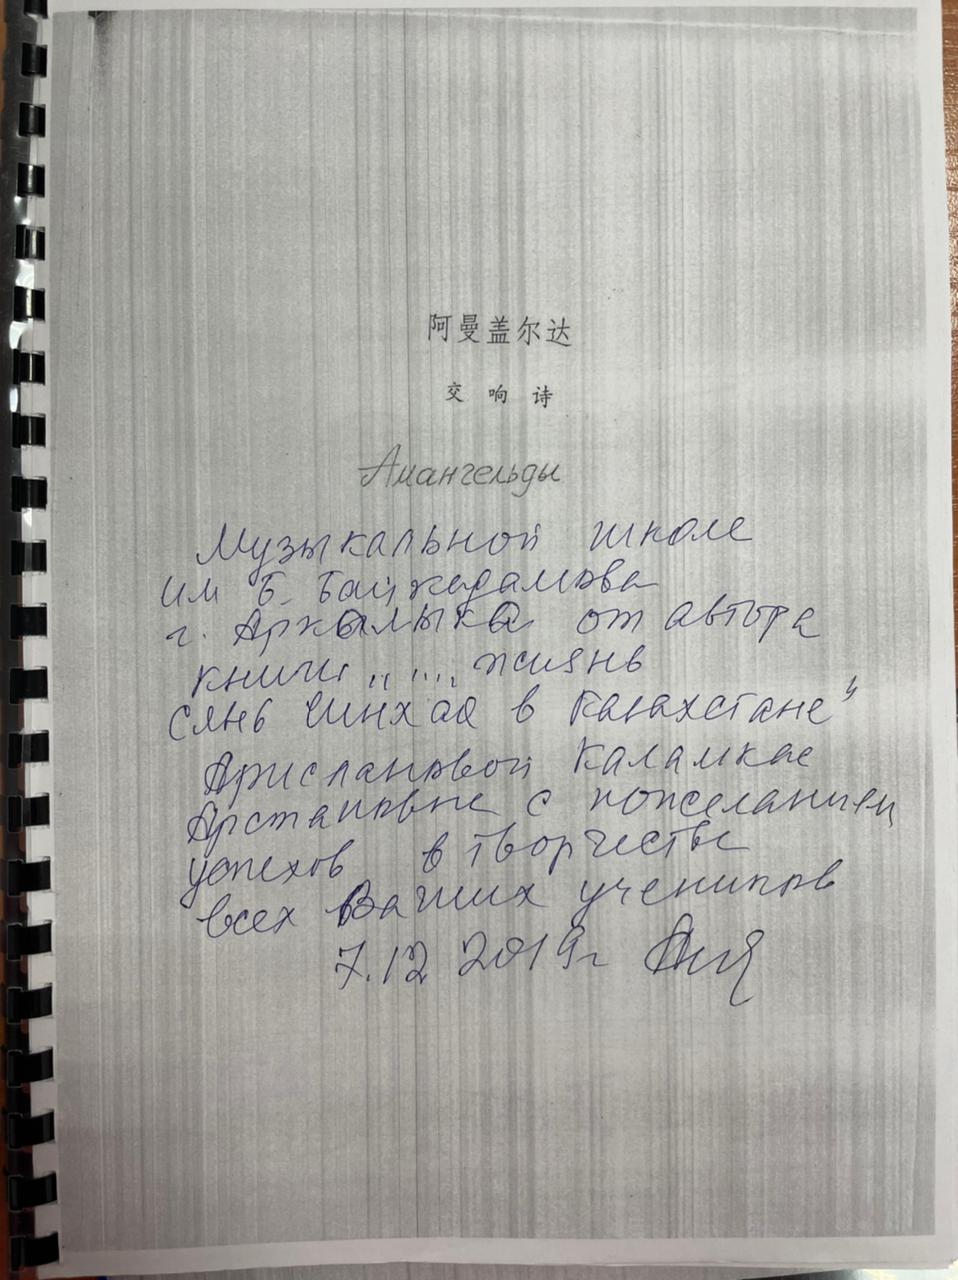 阿曼盖尔达
交响诗
Амангельды
Музыкальной школе
им Б. Байкадамова
г. Аркалыка от автора
книги „ .... жизнь
Сянь Синхая в Казахстане"
Арислановой Каламкас
Арстановне с пожеланием
успехов в творчестве
всех Ваших учеников
7.12 2019г